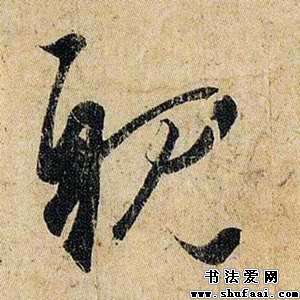 耽
书法爱网
www.shufaai.com